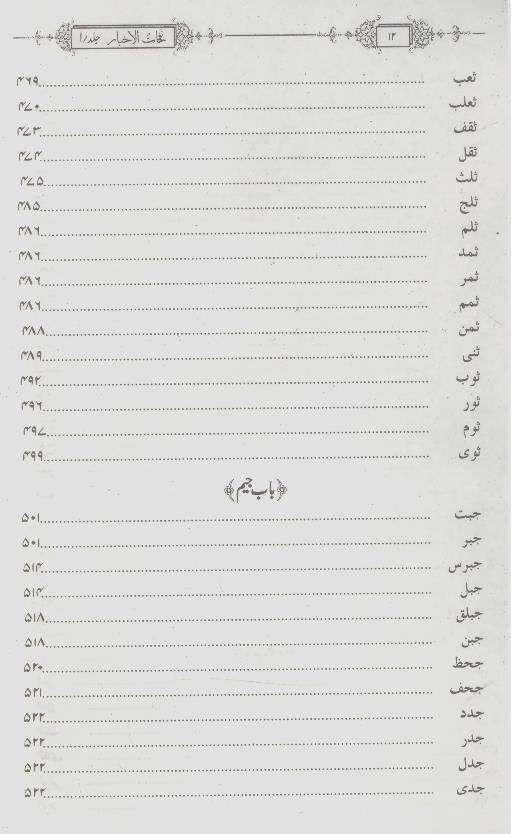 ۱۲ الأخبار جلد/۱
ثعب ........ ۴۶۹
ثعلب ........ ۴۷۰
ثقف ........ ۴۷۳
ثقل ........ ۴۷۴
ثلث ........ ۴۷۵
ثلج ........ ۴۸۵
ثلم ........ ۴۸۶
ثمد ........ ۴۸۶
ثمر ........ ۴۸۶
ثمم ........ ۴۸۶
ثمن ........ ۴۸۸
ثنی ........ ۴۸۹
ثوب ........ ۴۹۲
ثور ........ ۴۹۶
ثوم ........ ۴۹۷
ثوی ........ ۴۹۹
﴿باب جیم﴾
جبت ........ ۵۰۱
جبر ........ ۵۰۱
جبرس ........ ۵۱۴
جبل ........ ۵۱۴
جبلق ........ ۵۱۸
جبن ........ ۵۱۸
جحظ ........ ۵۲۰
جحف ........ ۵۲۱
جدد ........ ۵۲۲
جدر ........ ۵۲۲
جدل ........ ۵۲۲
جدی ........ ۵۲۲